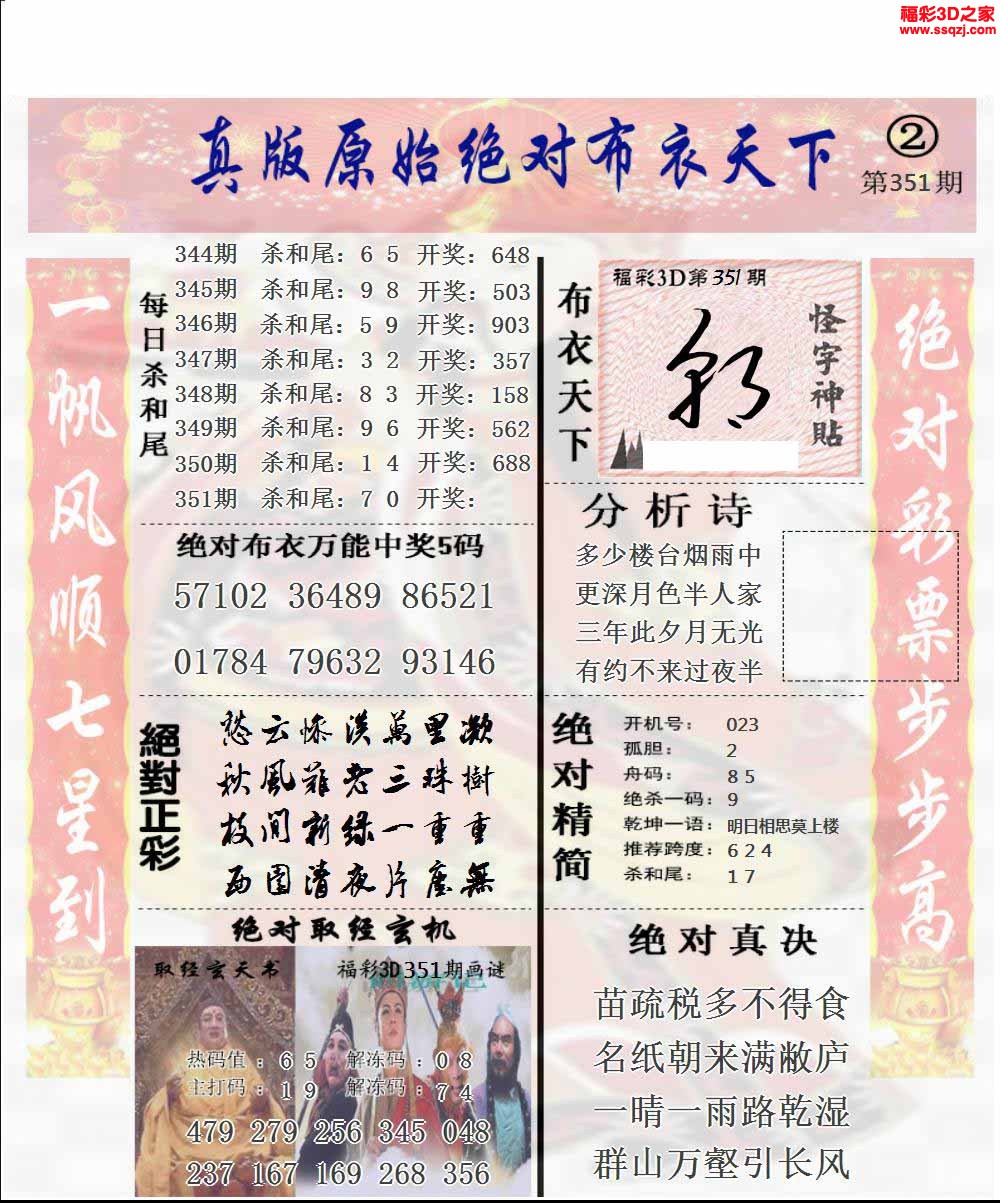 福彩3D之家
www.ssqzj.com
真版原始绝对布衣天下
②
第351期
一帆风顺七星到
每日杀和尾
344期 杀和尾：6 5 开奖：648
345期 杀和尾：9 8 开奖：503
346期 杀和尾：5 9 开奖：903
347期 杀和尾：3 2 开奖：357
348期 杀和尾：8 3 开奖：158
349期 杀和尾：9 6 开奖：562
350期 杀和尾：1 4 开奖：688
351期 杀和尾：7 0 开奖：
绝对布衣万能中奖5码
57102 36489 86521
01784 79632 93146
絕對正彩
愁云惨淡萬里凝
秋風菲老三珠樹
枝间新绿一重重
西園清夜片塵無
绝对取经玄机
取经玄天书
福彩3D351期画谜
热码值：6 5 解冻码：0 8
主打码：1 9 解冻码：7 4
479 279 256 345 048
237 167 169 268 356
布衣天下
福彩3D第351期
怪字神貼
分析诗
多少楼台烟雨中
更深月色半人家
三年此夕月无光
有约不来过夜半
绝对精简
开机号： 023
孤胆： 2
舟码： 8 5
绝杀一码：9
乾坤一语：明日相思莫上楼
推荐跨度：6 2 4
杀和尾： 1 7
绝对真决
苗疏税多不得食
名纸朝来满敝庐
一晴一雨路乾湿
群山万壑引长风
绝对彩票步步高